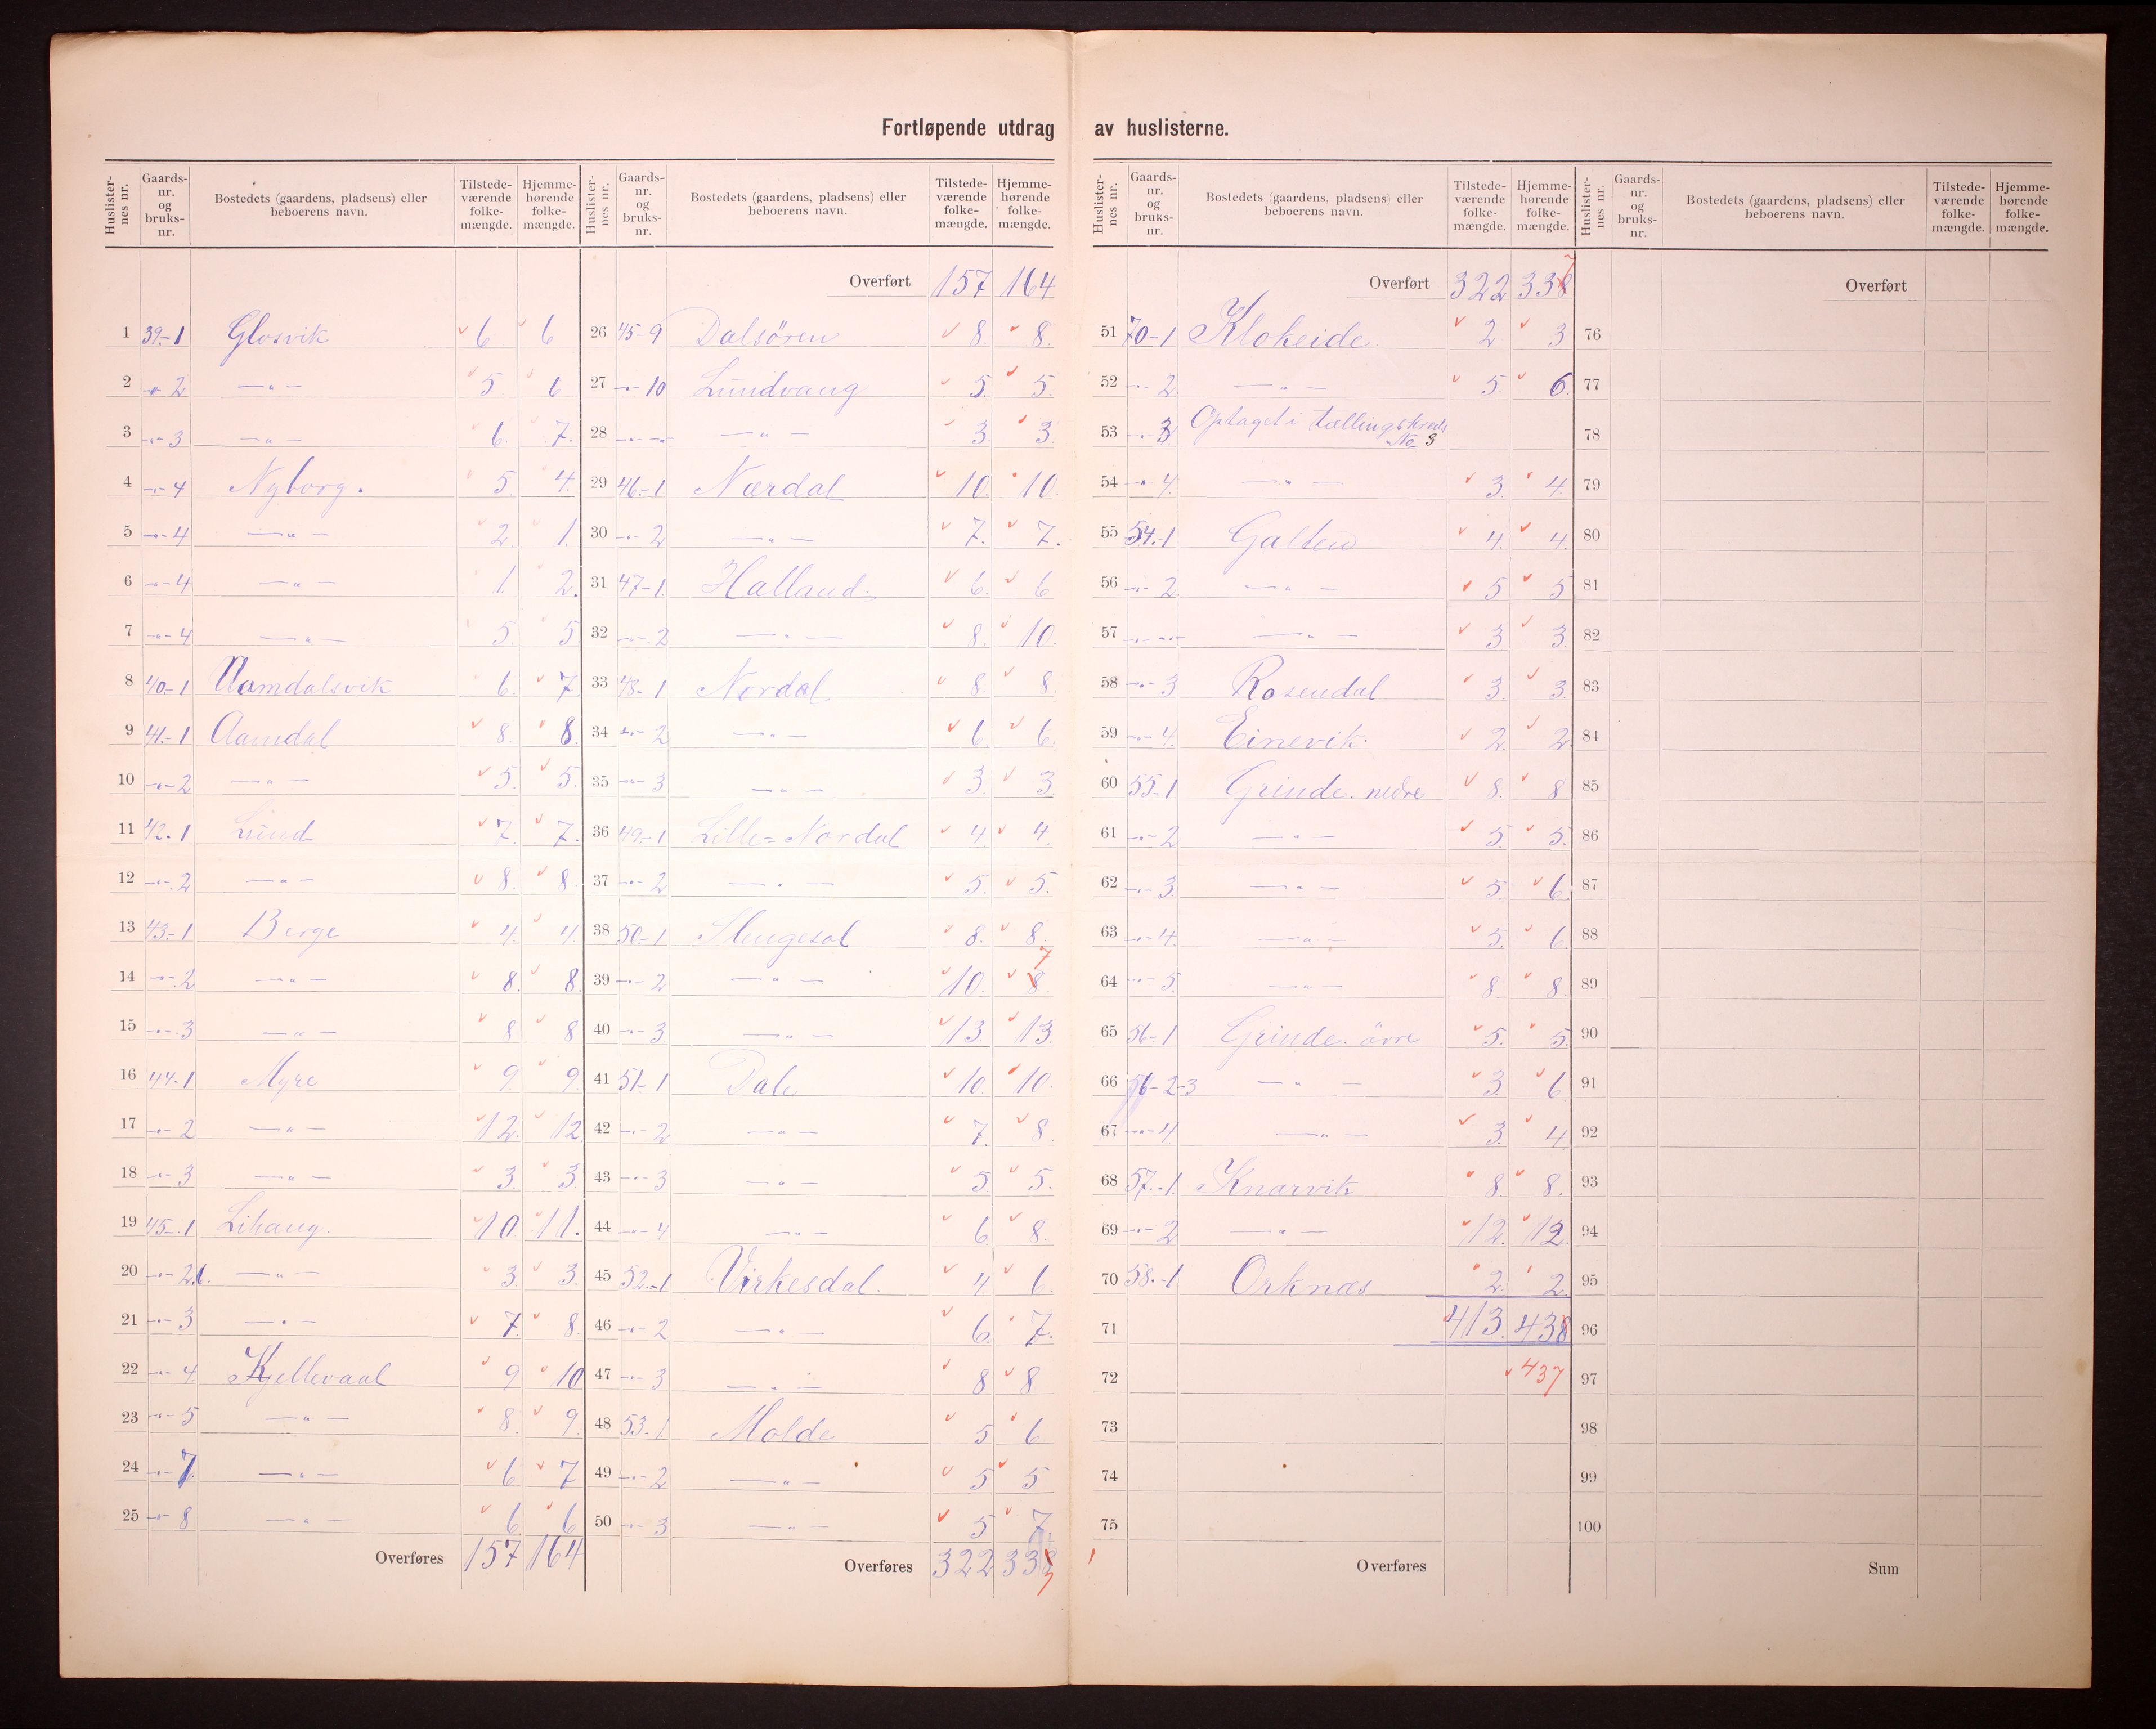 Fortløpende utdrag av huslisterne.
Huslister-nes nr. | Gaards-nr. og bruks-nr. | Bostedets (gaardens, pladsens) eller beboerens navn. | Tilstede-værende folke-mængde. | Hjemme-hørende folke-mængde.
1 39.-1 Glosvik 6 6
2 -"- 2 -"- 5 6
3 -"- 3 -"- 6. 7.
4 -"- 4 Nyborg. 5. 4.
5 -"- 4 -"- 2. 1.
6 -"- 4 -"- 1. 2.
7 -"- 4 -"- 5. 5.
8 40.-1 Aamdalsvik 6. 7
9 41.-1 Aamdal 8. 8.
10 -"- 2 -"- 5. 5.
11 42.-1 Lund 7. 7.
12 -"- 2 -"- 8. 8.
13 43.-1 Berge 4. 4.
14 -"- 2 -"- 8. 8.
15 -"- 3 -"- 8 8
16 44.-1 Myre 9 9.
17 -"- 2 -"- 12. 12
18 -"- 3 -"- 3. 3.
19 45.-1 Lihaug. 10 11.
20 -"- 2.6. -"- 3. 3.
21 -"- 3 -"- 7. 8.
22 -"- 4. Kjellevaal 9 10
23 -"- 5 -"- 8. 9.
24 -"- 7. -"- 6 7
25 -"- 8 -"- 6 6
Overføres 157 164
Huslister-nes nr. | Gaards-nr. og bruks-nr. | Bostedets (gaardens, pladsens) eller beboerens navn. | Tilstede-værende folke-mængde. | Hjemme-hørende folke-mængde.
Overført 157 164
26 45-9 Dalsören 8. 8.
27 -"- 10 Lundvaug 5. 5.
28 -"- -"- -"- 3. 3.
29 46.-1 Nærdal 10. 10.
30 -"- 2 -"- 7. 7.
31 47-1. Halland. 6. 6
32 -"- 2 -"- 8. 10.
33 48.-1 Nordal 8. 8.
34 -"- 2 -"- 6. 6.
35 -"- 3 -"- 3. 3.
36 49.-1 Lille-Nordal 4. 4.
37 -"- 2 -"- 5. 5.
38 50.-1 Slengesol 8. 8.
39 -"- 2 -"- 10. 8. 7
40 -"- 3 -"- 13. 13.
41 51.-1 Dale 10. 10.
42 -"- 2 -"- 7. 8.
43 -"- 3 -"- 5. 5.
44 -"- 4 -"- 6. 8.
45 52.-1 Virkesdal. 4 6.
46 -"- 2 -"- 6. 7.
47 -"- 3 -"- 8 8
48 53.-1 Molde 5 6
49 -"- 2 -"- 5 5
50 -"- 3 -"- 5 7.
Overføres 322 338 7
Huslister-nes nr. | Gaards-nr. og bruks-nr. | Bostedets (gaardens, pladsens) eller beboerens navn. | Tilstede-værende folke-mængde. | Hjemme-hørende folke-mængde.
Overført 322 338 7
51 70-1 Klokeide 2. 3
52 -"- 2. -"- 5. 6.
53 -"- 3. Optaget i tællingskreds No 3
54 -"- 4. -"- 3. 4.
55 54.-1 Galten 4. 4.
56 -"- 2 -"- 5 5
57 -"- -"- -"- 3. 3.
58 -"- 3 Rosendal 3. 3.
59 -"- 4. Einevik. 2. 2.
60 55-1 Grinde. nedre 8. 8
61 -"- 2 -"- 5. 5.
62 -"- 3. -"- 5. 6.
63 -"- 4. -"- 5. 6.
64 -"- 5. -"- 8. 8.
65 56-1 Grinde. övre 5. 5.
66 56-2-3 -"- 3. 6.
67 -"- 4. -"- 3. 4.
68 57.-1. Knarvik 8. 8.
69 -"- 2 -"- 12. 12.
70 58.-1 Orknæs 2. 2.
71 413. 438
72 437
73
74
75
Overføres
Huslister-nes nr. | Gaards-nr. og bruks-nr. | Bostedets (gaardens, pladsens) eller beboerens navn. | Tilstede-værende folke-mængde. | Hjemme-hørende folke-mængde.
Overført
76
77
78
79
80
81
82
83
84
85
86
87
88
89
90
91
92
93
94
95
96
97
98
99
100
Sum